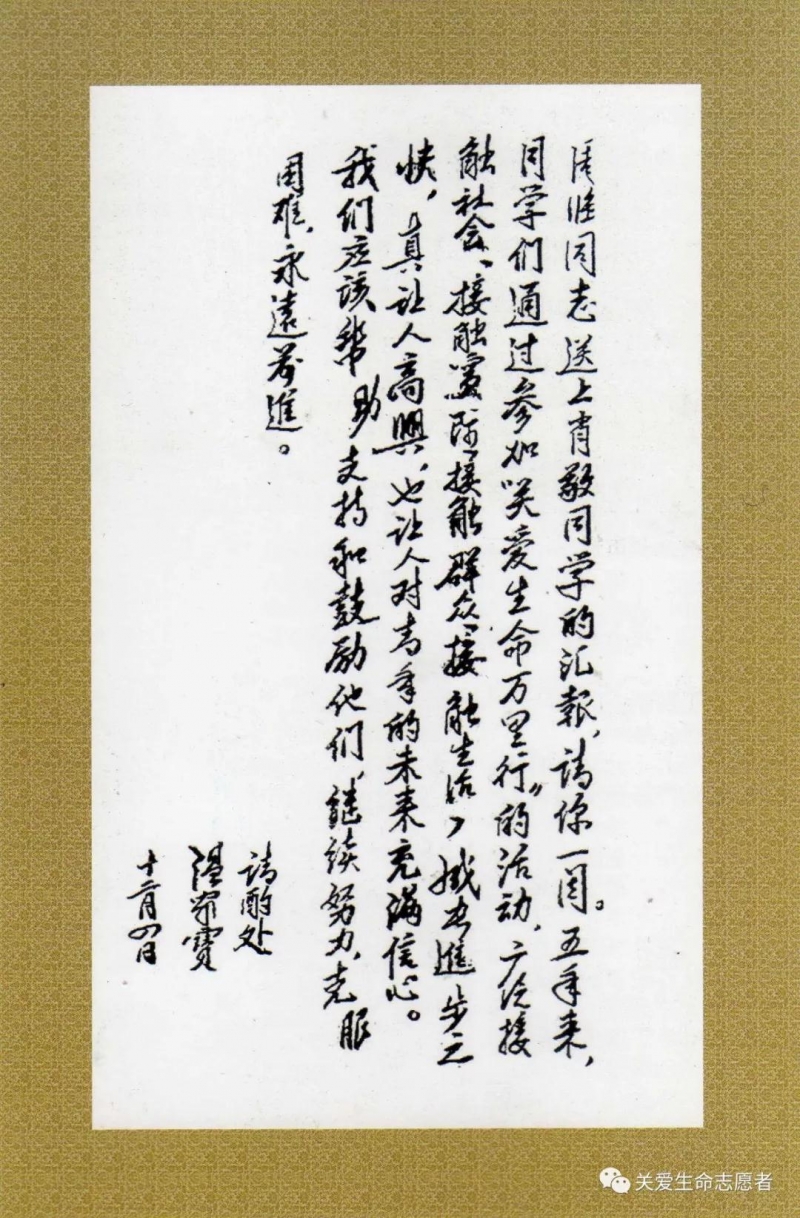 同志 送上肖敬同学的汇報，请你一阅。五年来，
同学们通过参加关爱生命万里行”的活动，广泛接
触社会、接触实际、接触群众、接触生活，進步之
快，真让人高興，也让人对青年的未来充满信心。
我们应该幫助支持和鼓励他们，继续努力，克服
困难，永遠前進。
请酌处
温家寶
十二月四日
关爱生命志愿者